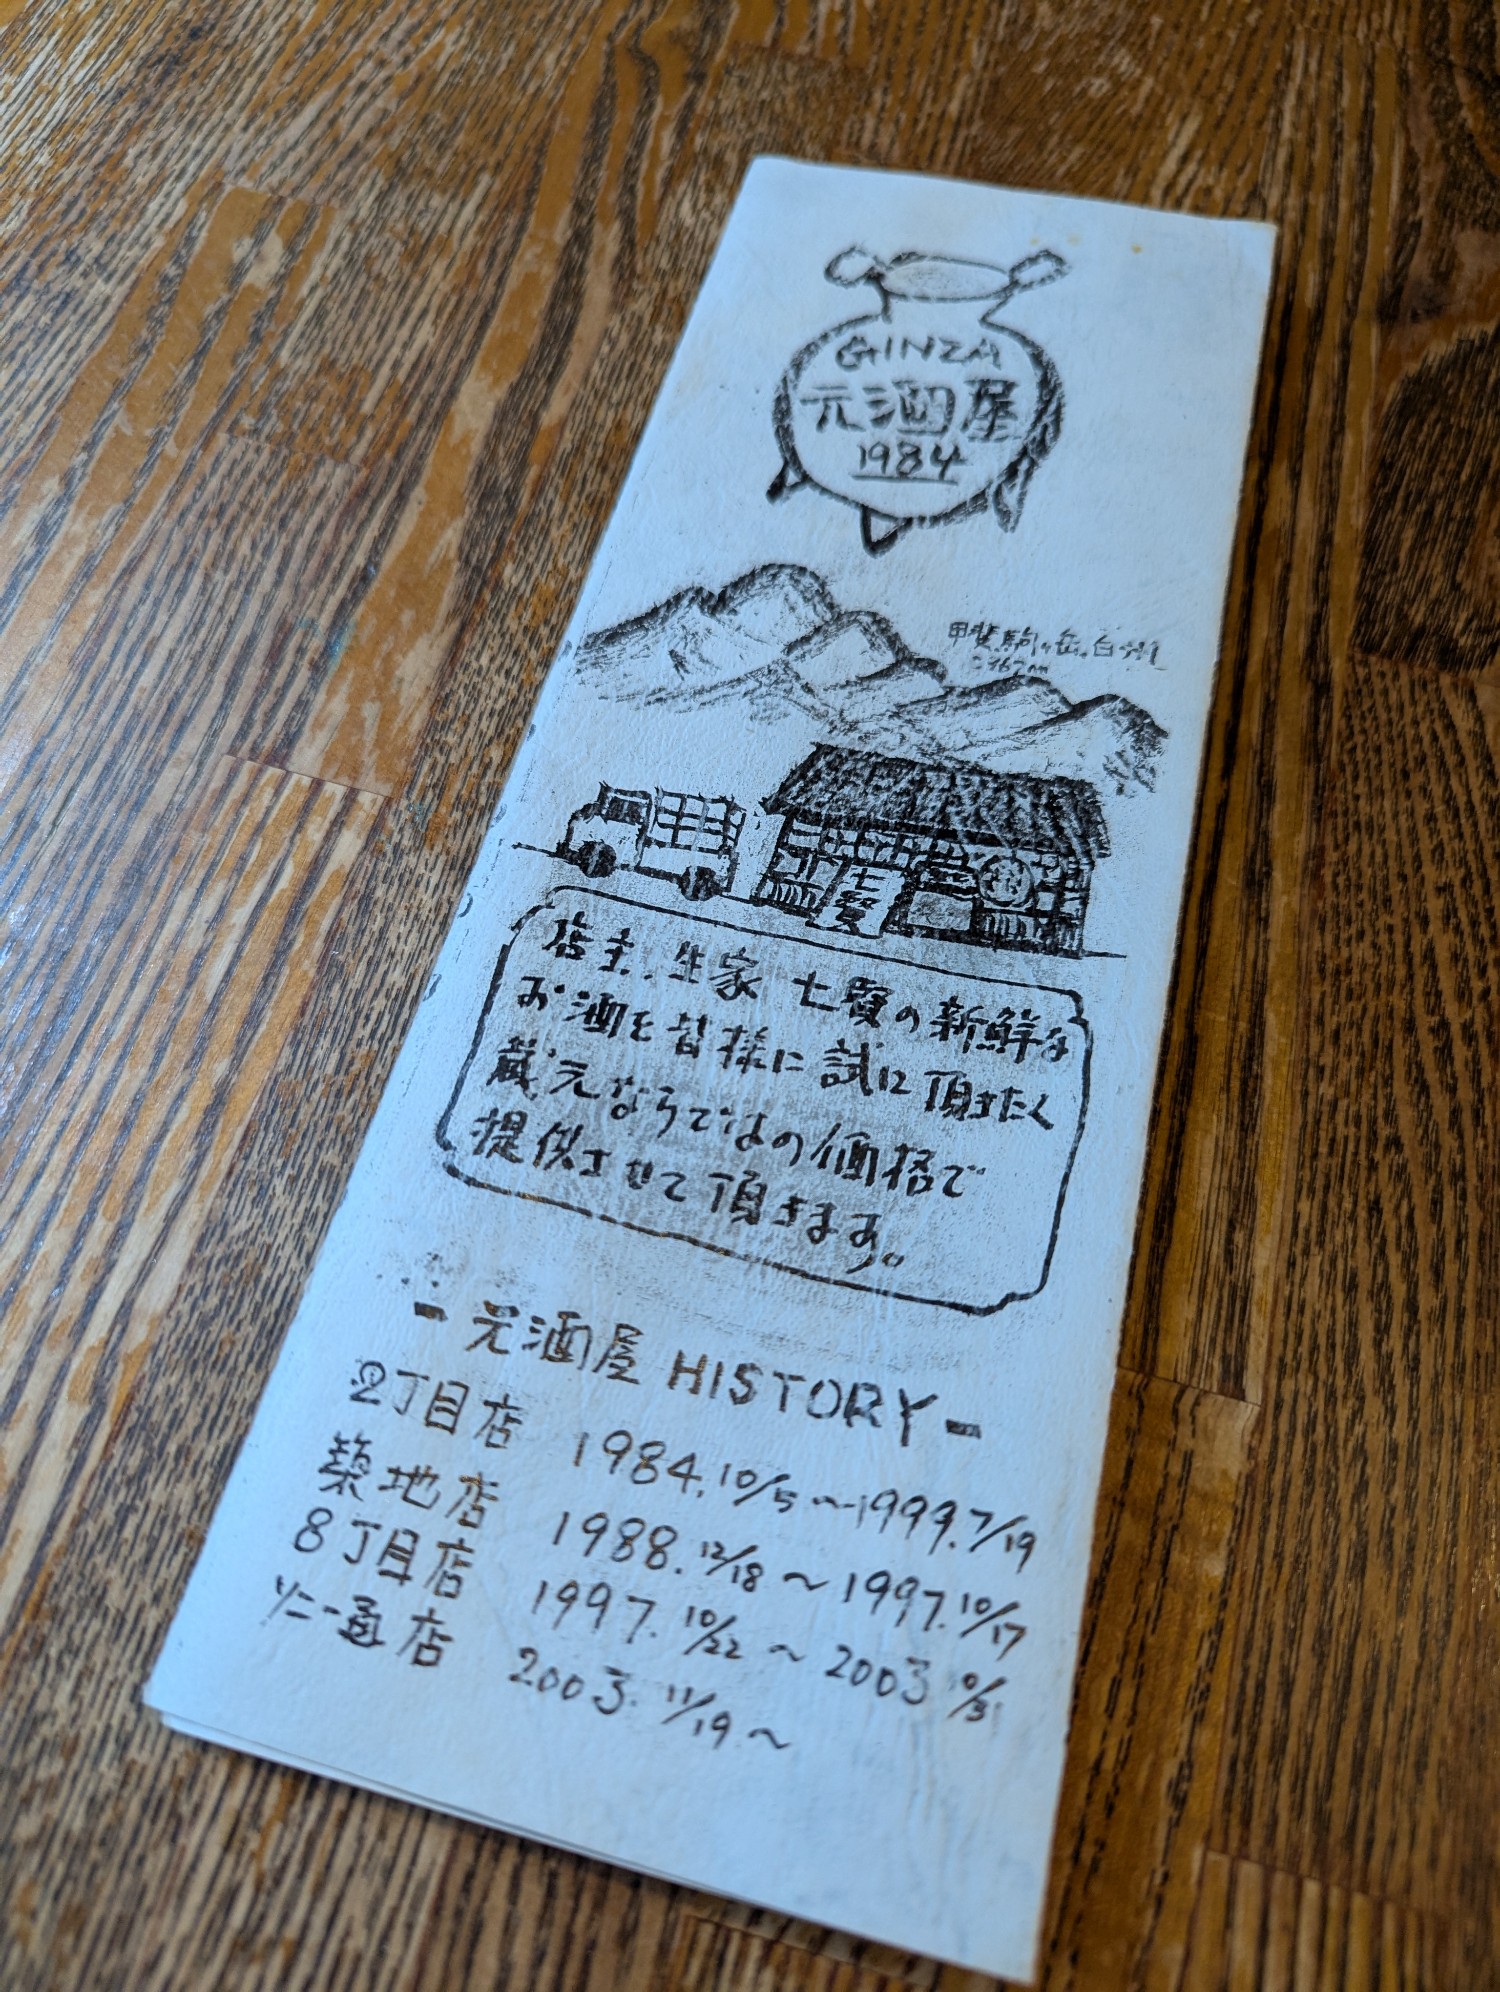 GINZA
元酒屋
1984
甲斐駒ヶ岳、白州
七賢
店主、生家 七賢の新鮮な
お酒を皆様に試に頂きたく
蔵元ならではの価格で
提供させて頂きます。
- 元酒屋 HISTORY -
2丁目店 1984.10/5〜1999.7/19
築地店 1988.12/18〜1997.10/17
8丁目店 1997.10/22〜2003.10/31
ソニー通店 2003.11/19〜